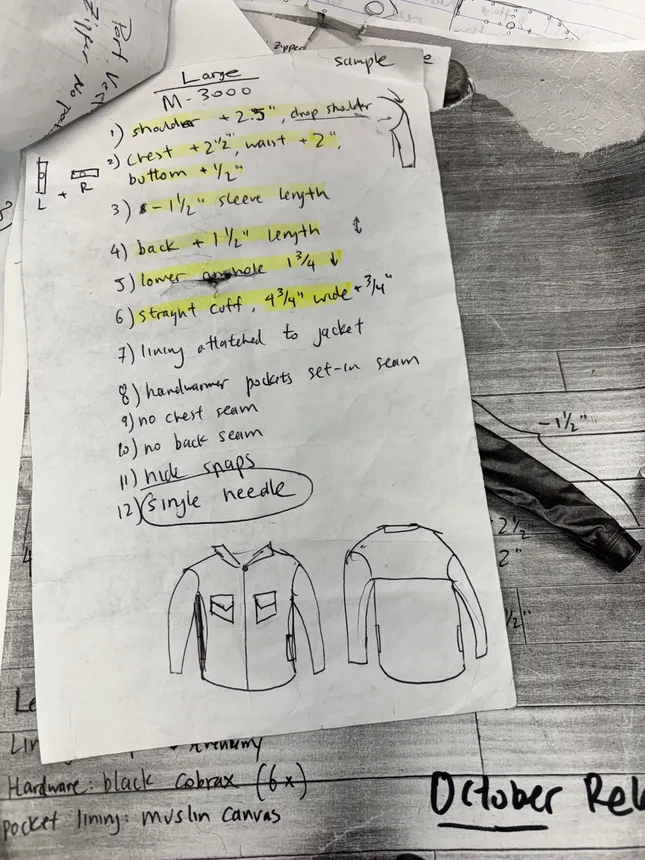 Zipper
sample
Large
M-3000
1) shoulder + 2.5", drop shoulder
2) Chest + 2 1/2", waist + 2",
buttom + 1/2"
L + R
3) - 1 1/2" sleeve length
4) back + 1 1/2" length ↕
5) lower armhole 1 3/4 ↓
6) straynt cuff, 4 3/4" wide + 3/4"
7) lining attatched to jacket
8) handwarmer pockets set-in seam
9) no chest seam
10) no back seam
11) hide snaps
12) single needle
-1 1/2"
2 1/2
2"
1/2"
Hardware: black cobrax (6x)
pocket lining: muslin canvas
October